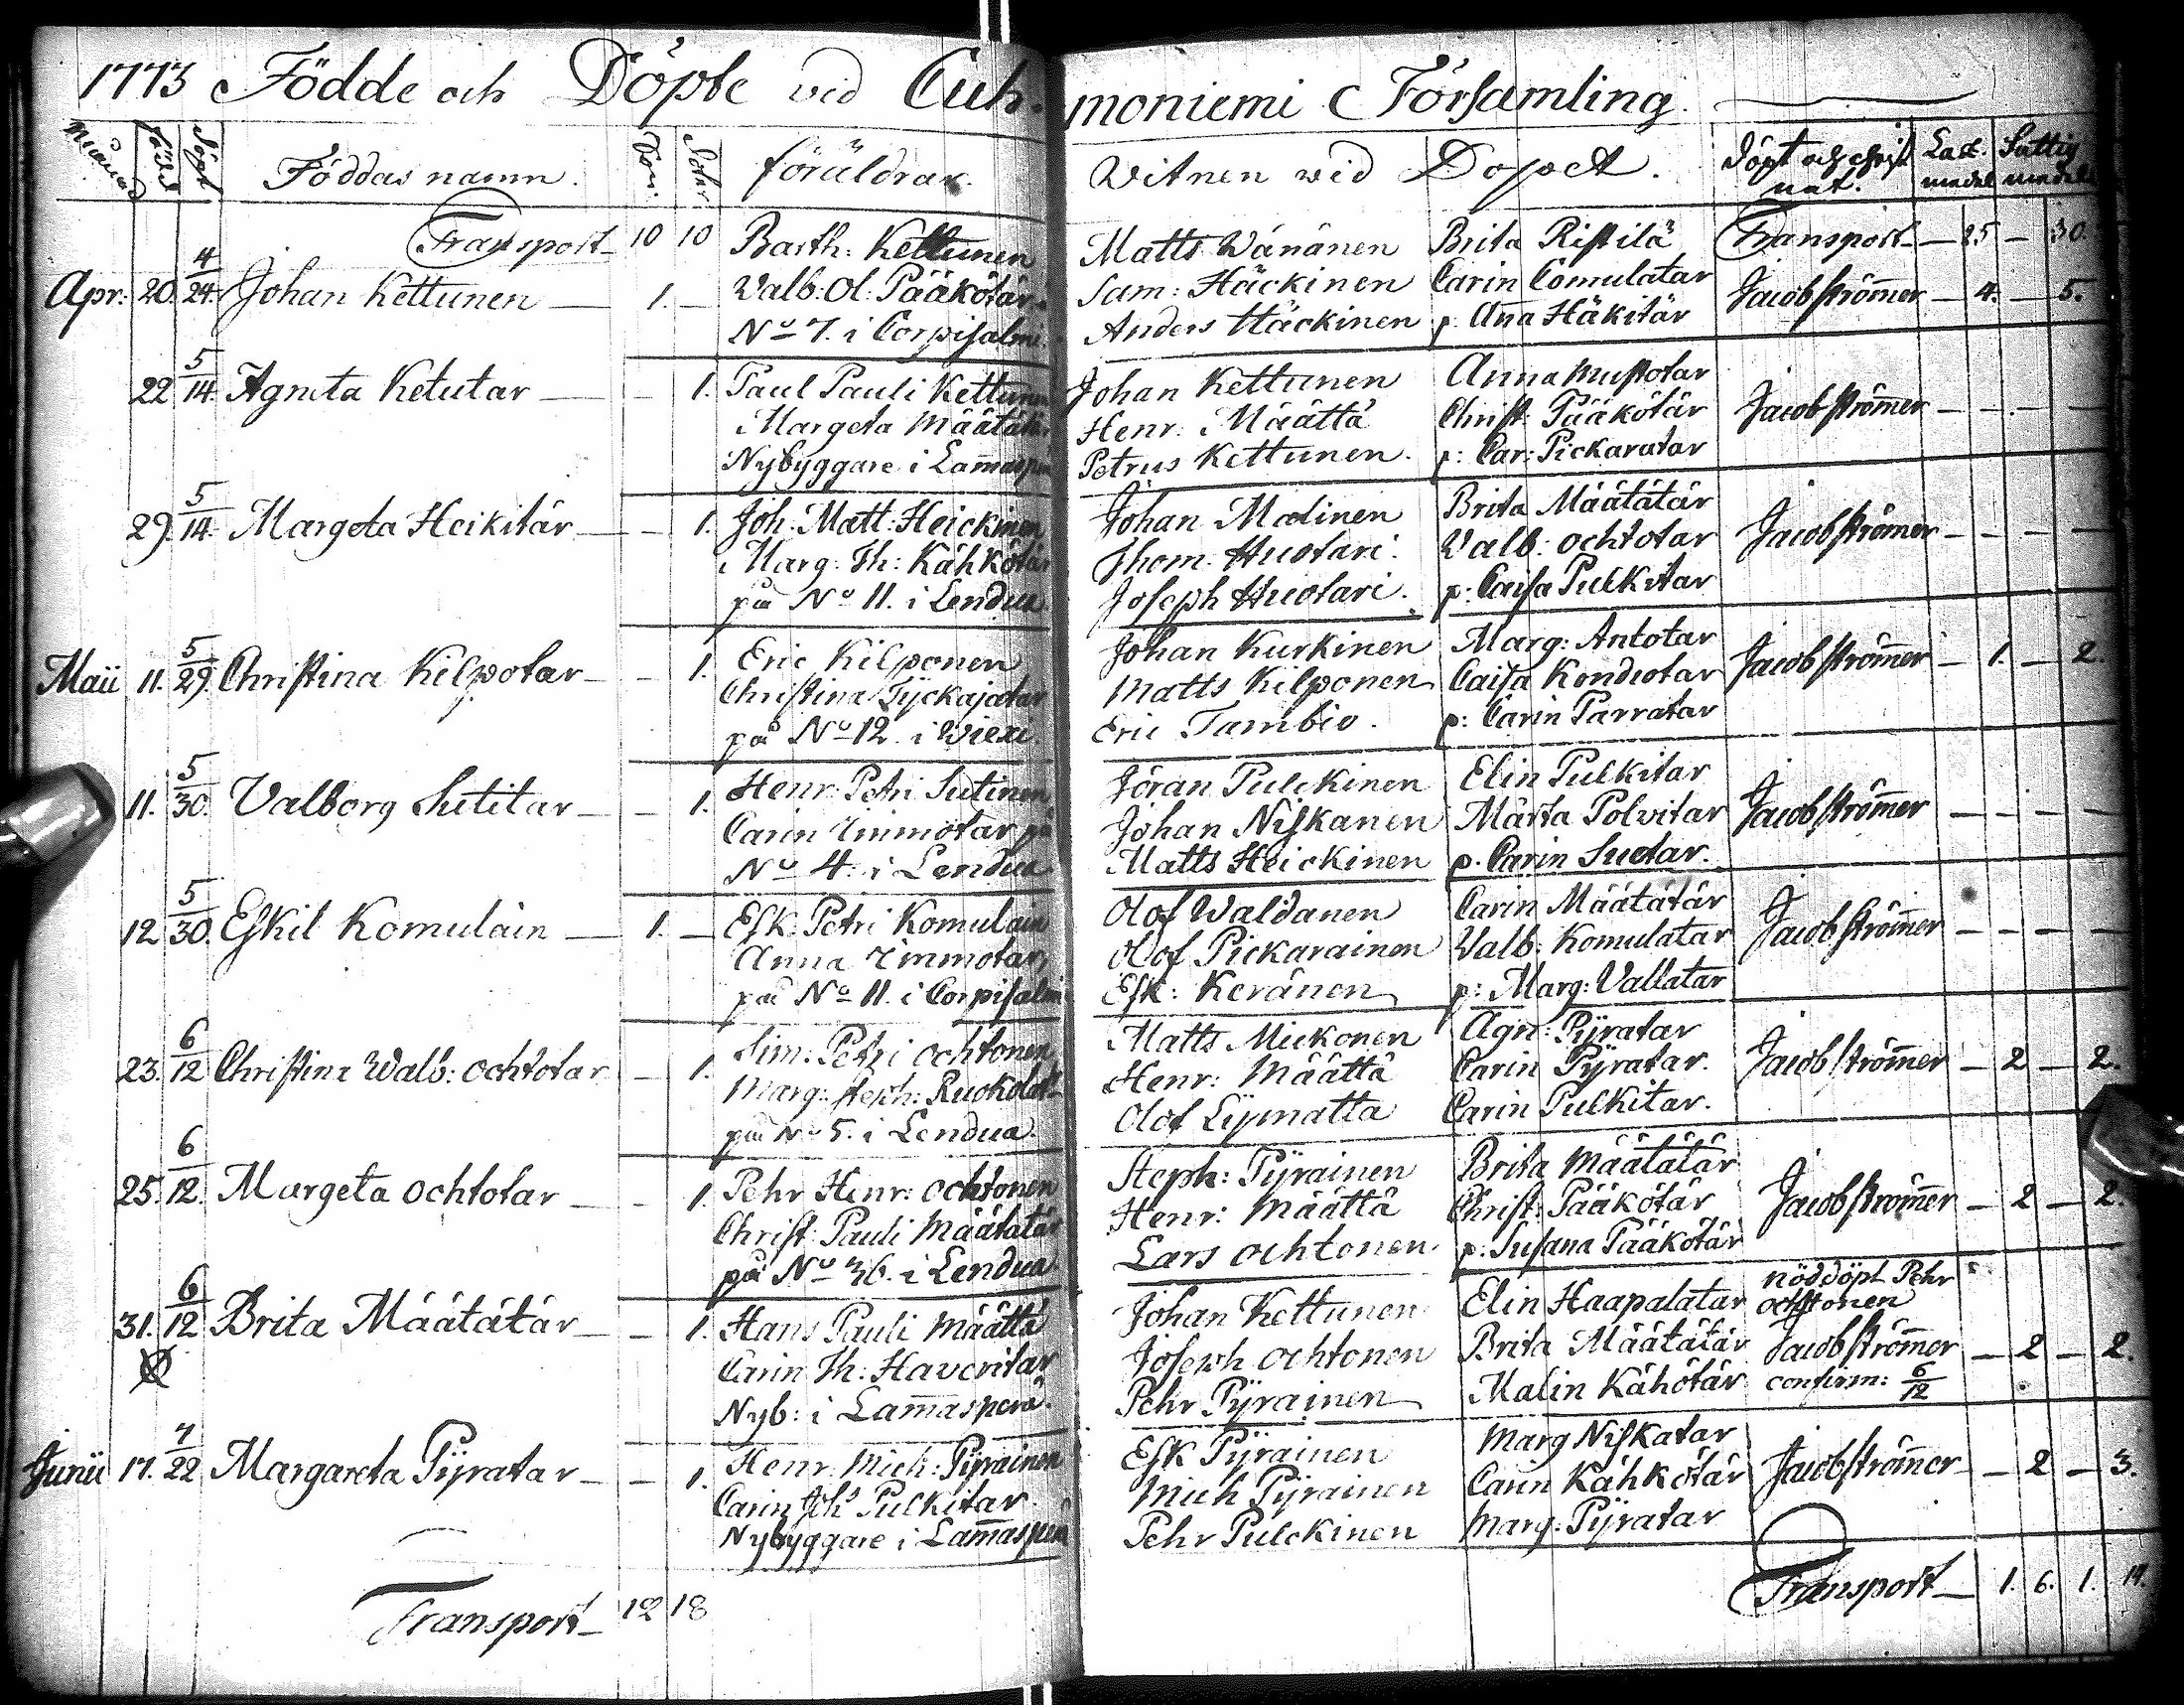 1773 Födde och Döpte vid Cuh-
moniemi Församling
Månad Född Döpt Föddas namn. Son. Doter föräldrar.
Witnen wid Dopet. Döpt och christnat. Last. medel Fattig medel
Transport 10 10 Barth: Kettunen
Apr: 20. 4/24. Johan Kettunen 1. Valb: Ol: Pääkötär
No 7. i Corpisalmi.
22 5/14. Agneta Ketutar 1. Paul Pauli Kettunen
Margeta Määtätär
Nybyggare i Lam̄asperä
29. 5/14. Margeta Heikitär 1. Joh. Matt: Heickinen
Marg: Th: Kähkötär
på No 11. i Lendua.
Maii 11. 5/29. Christina Kilpotar 1. Eric Kilponen
Christina Tyckajatar
på No 12. i Wiexi.
11. 5/30. Valborg Sutitar 1. Henr: Petri Sutinen
Carin Immotar på
No 4. i Lendua
12 5/30. Eskil Komulain 1. Esk: Petri Komulain
Anna Immotar,
på No 11. i Corpisalmi
23. 6/12 Christina Walb: Ochtotar 1. Sim: Petri Ochtonen
Marg: Steph: Ruokolat:
på No 5. i Lendua.
25. 6/12. Margeta Ochtotar 1. Pehr Henr: Ochtonen
Christ: Pauli Määtätär
på No 36. i Lendua
31. 6/12 Brita Määtätär 1. Hans Pauli Määttä
Carin Th: Haveritar
Nyb: i Lam̄asperä.
Junii 17. 7/22 Margareta Pyratar 1. Henr: Mich: Pyrainen
Carin Joh: Pulkitar
Nybyggare i Lam̄asperä
Transport 12 18
Matts Wänänen Brita Ristilä Transport 25 30.
Sam: Häckinen Carin Comulatar Jacob Ström̄er 4. 5.
Anders Häckinen p. Ana Häkitär
Johan Kettunen Anna Mustotar
Henr: Määttä Christ: Pääkötär Jacob Ström̄er
Petrus Kettunen. p: Car: Pickaratar
Johan Malinen Brita Määtätär
Thom. Huotari. Valb: Ochtotar Jacob Ström̄er
Joseph Huotari. p: Caisa Pulkitar
Johan Kurkinen Marg: Antotar
Matts Kilponen Caisa Kondiotar Jacob Ström̄er 1. 2.
Eric Tambio. p: Carin Parratar
Jöran Pulckinen Elin Pulkitar
Johan Niskanen Märta Polvitar Jacob Ström̄er
Matts Heickinen p. Carin Suotar.
Olof Waldanen Carin Määtätär
Olof Pickarainen Valb: Komulatar Jacob Ström̄er
Esk: Keränen p: Marg: Vallatar
Matts Mickonen Agn: Pyratar
Henr: Määttä Carin Pyratar. Jacob Ström̄er 2 2.
Olof Lipnatta Carin Pulkitar.
Steph: Pyrainen Brita Määtätär
Henr: Määttä Christ: Pääkötär Jacob Ström̄er 2 2.
Lars Ochtonen. p: Susana Pääkötär
Johan Kettunen Elin Haapalatar nöddöpt Pehr Ochtonen
Joseph Ochtonen Brita Määtätär Jacob Ström̄er 2 2.
Pehr Pyrainen Malin Kähötär confirm: 6/12
Esk Pyrainen Marg Niskatar
Mich Pyrainen Carin Kähkötär Jacob Ström̄er 2 3.
Pehr Pulckinen Marg: Pyratar
Transport 1. 6. 1. 14.